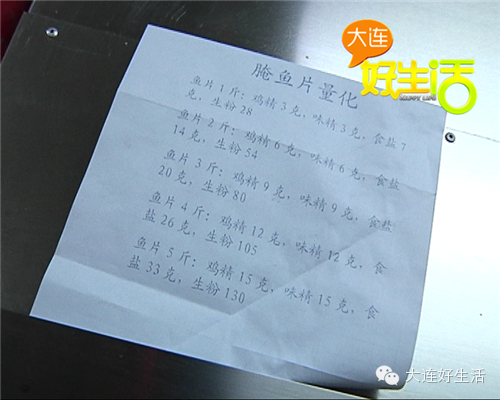 大连
好生活
腌鱼片量化
鱼片 1 斤：鸡精 3 克，味精 3 克，食盐 7
克，生粉 28
鱼片 2 斤：鸡精 6 克，味精 6 克，食盐
14 克，生粉 54
鱼片 3 斤：鸡精 9 克，味精 9 克，食盐
20 克，生粉 80
鱼片 4 斤：鸡精 12 克，味精 12 克，食
盐 26 克，生粉 105
鱼片 5 斤：鸡精 15 克，味精 15 克，食
盐 33 克，生粉 130
大连好生活